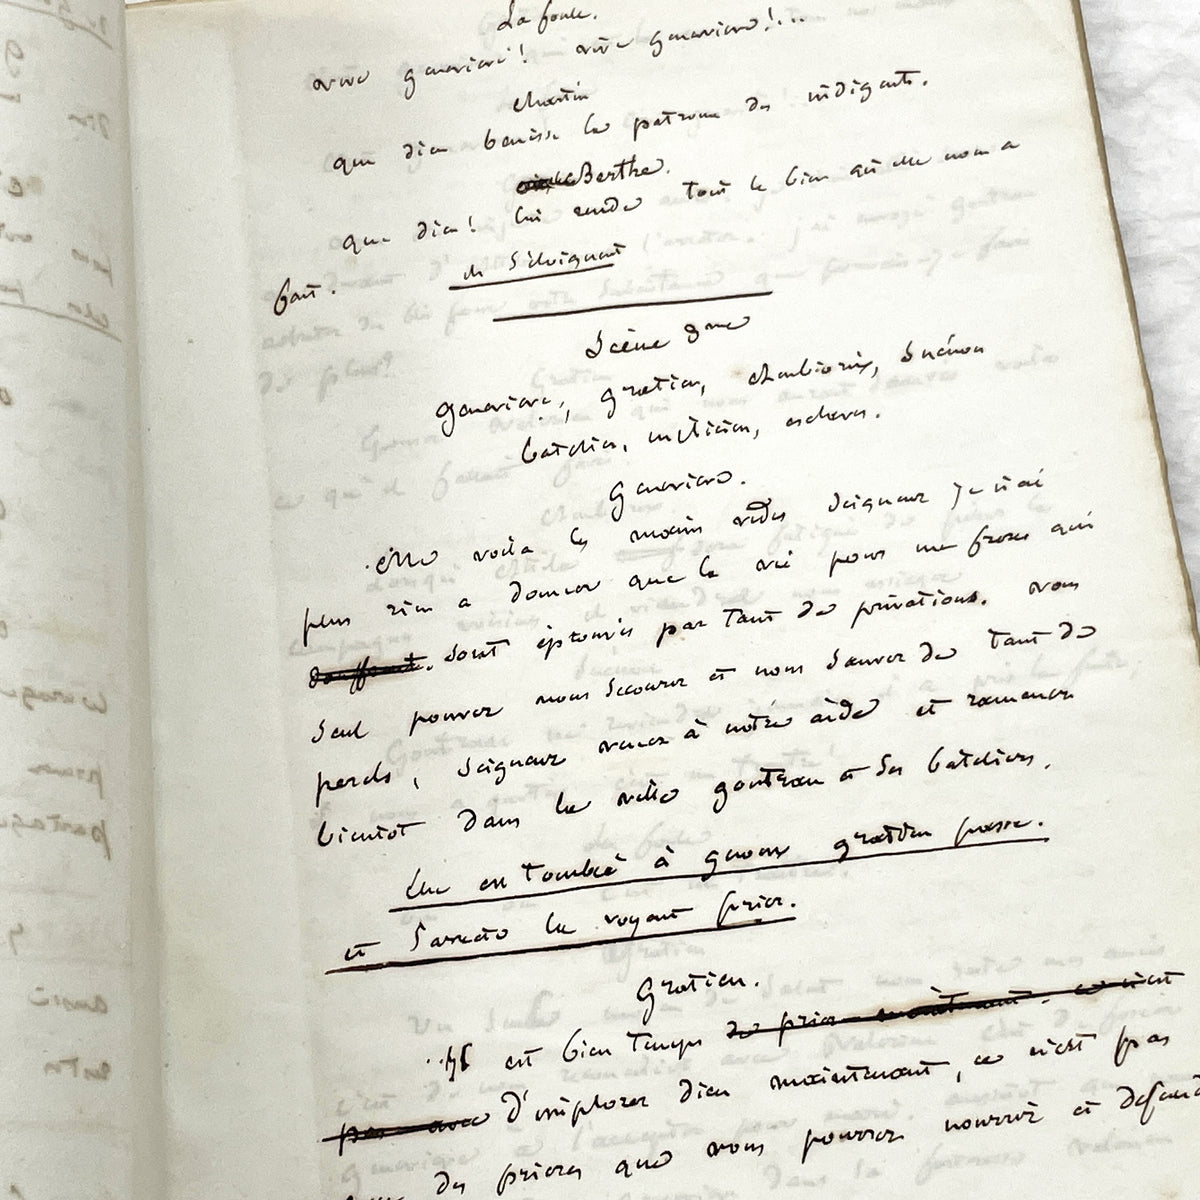 La foule.
vive geneviève! vive geneviève!...
Martin
que dieu benisse la patrone des indigents.
Berthe.
que dieu! lui rende tout le bien qu'elle nous a
fait.
Scène 2me
geneviève, gratien,
bateliers, miliciens, esclaves.
geneviève.
Me voila les mains vides seigneur je n'ai
plus rien a donner que la vie pour me frères qui
sont éprouvés par tant de privations. vous
seul pouvez nous secourir et nous sauver de tant de
perils, seigneur venez à notre aide et ramenez
bientôt dans la ville gontran et ses bateliers.
Elle en tombée à genoux gratien passe.
et s'arrete la voyant prier.
Gratien.
Il est bien temps de prier maintenant. ce n'est
pas avec d'implorer dieu maintenant, ce n'est pas
des prieres que vous pourrez nourrir et